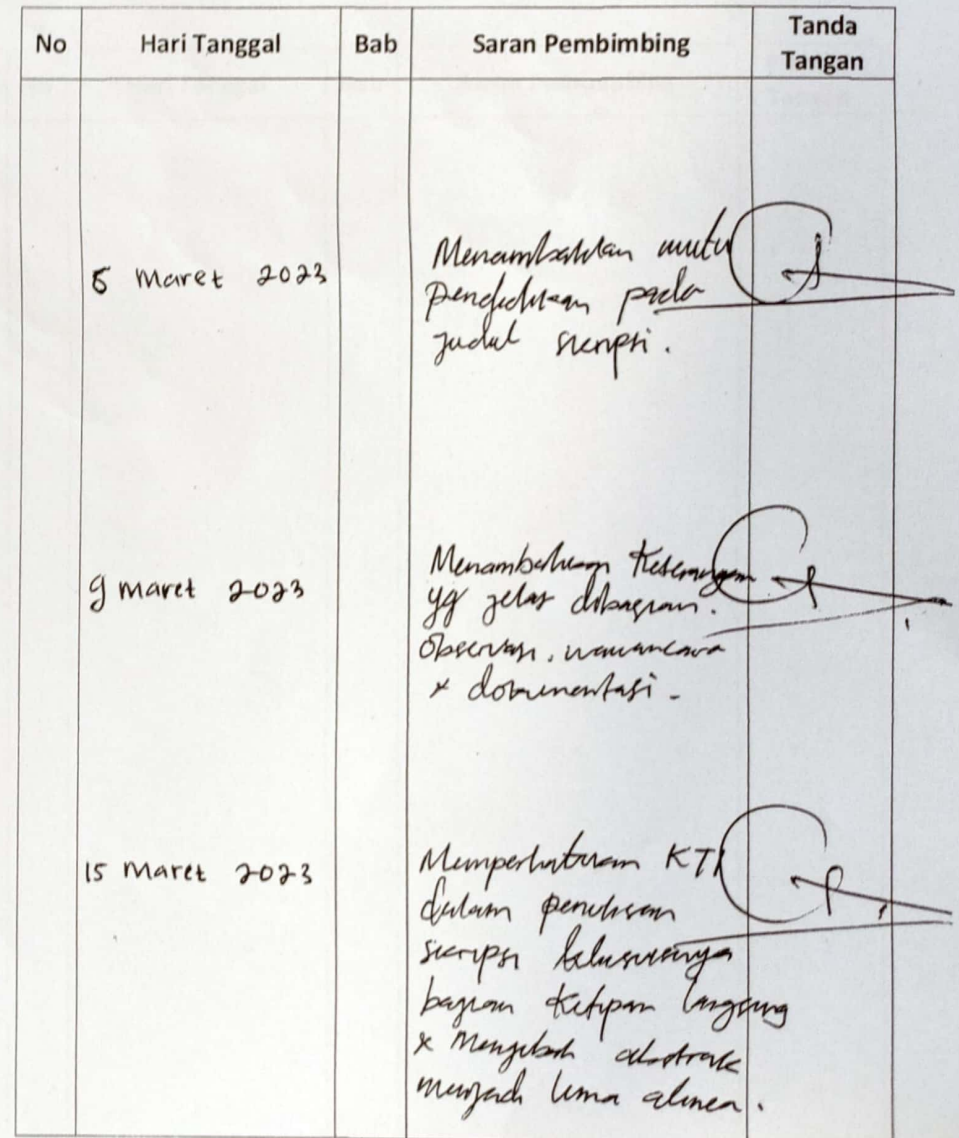 No Hari Tanggal Bab Saran Pembimbing Tanda Tangan
6 Maret 2023
Menambahkan mutu
Pendidikan pada
Judul skripsi.
9 Maret 2023
Menambahkan Keterangan
yg jelas dibagian.
Observasi, wawancara
& dokumentasi -
15 Maret 2023
Memperhatikan KTI
dalam penulisan
skripsi khususnya
bagian Kutipan langsung
& Mengubah abstrak
menjadi lima alinea.